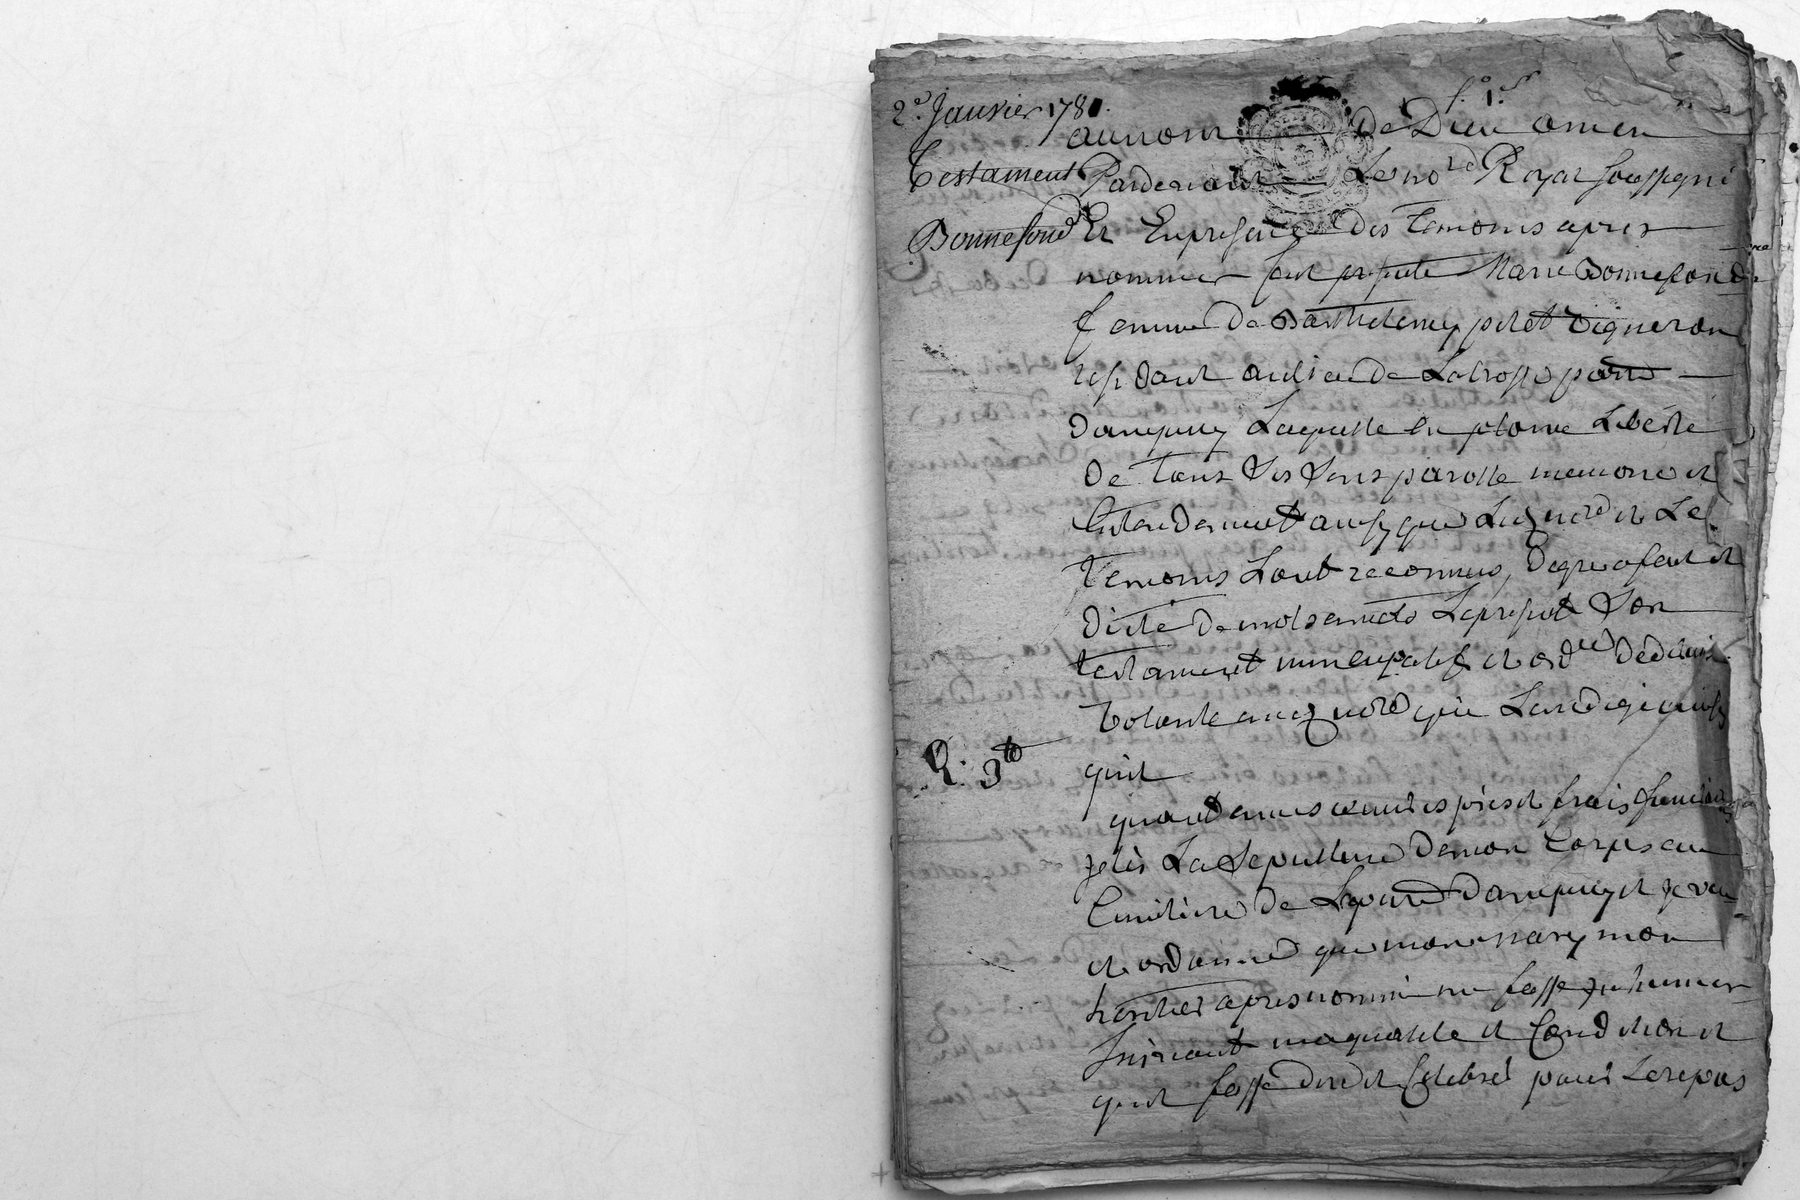 f.o 1.r
2.e Janvier 1781.
Testament
Bonnefond
R. 3 tt
au nom de Dieu amen
Pardevant Le no.re Royal soussigné
Et En presence des temoins apres
nommes fut presente Marie Bonnefond
femme de Barthelemy pilet vigneron
residant au lieu de La brosse parr.e
dampuis Laquelle en pleine Liberté
de tous ses sens parolle memoire et
Entendement ainsy que Led no.re et Les
temoins Lont reconnus, de gré a fait et
dicté de mot a mots Le present son
testament nuncupatif et ord.ce de dernière
volonté audit no.re qui La redigé ainsy
quil suit
quant a mes oeuvres pies et frais funeraires
jelis La sepulture de mon Corps au
Cimitiere de La parr.e dampuis et je veux
et ordonne que mon mary mon
heritier apres nommé me fasse inhumer
suivant ma qualité et Condition et
quil fasse dire et Celebrer pour Le repos